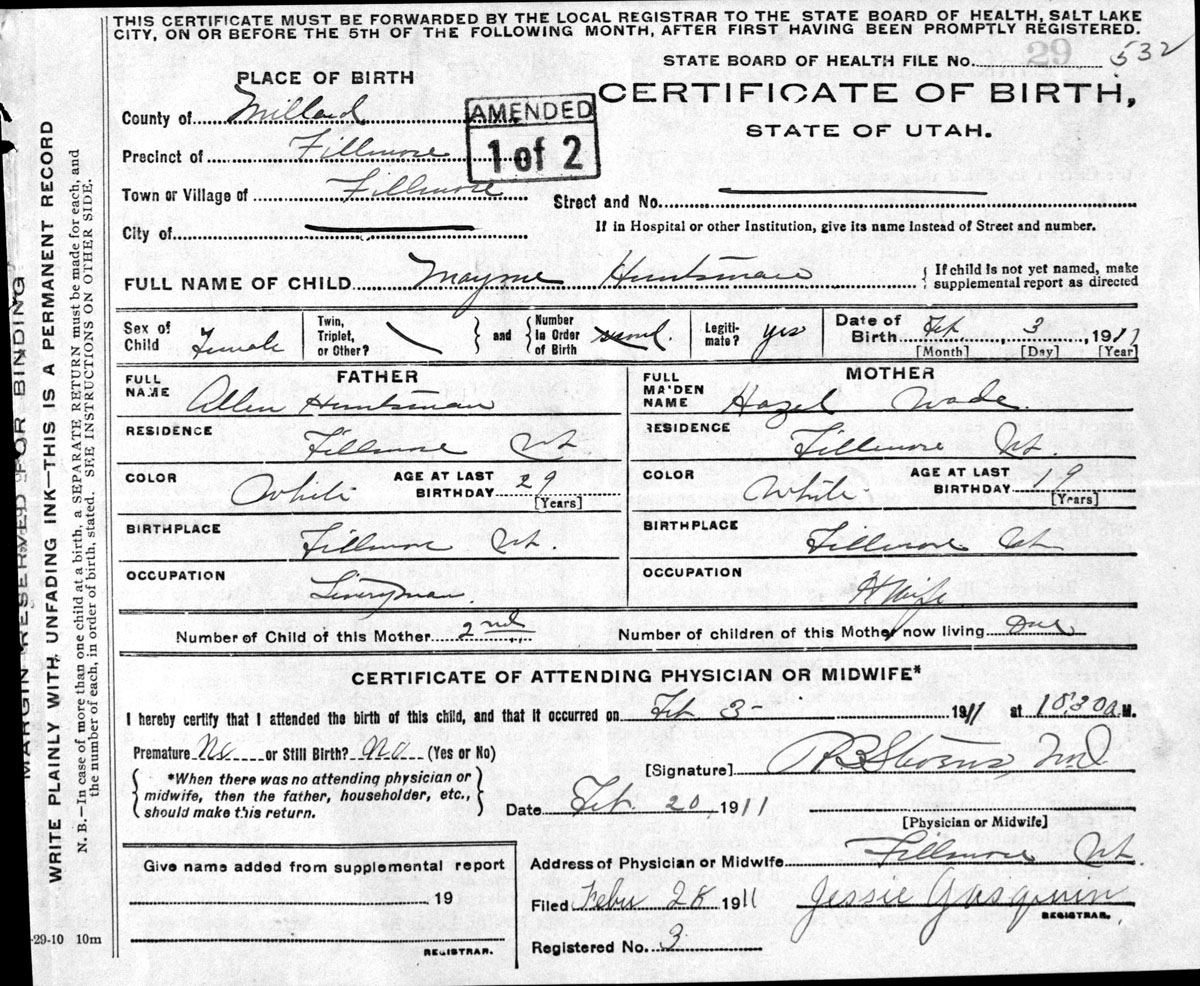 THIS CERTIFICATE MUST BE FORWARDED BY THE LOCAL REGISTRAR TO THE STATE BOARD OF HEALTH, SALT LAKE
CITY, ON OR BEFORE THE 5TH OF THE FOLLOWING MONTH, AFTER FIRST HAVING BEEN PROMPTLY REGISTERED.
29
532
STATE BOARD OF HEALTH FILE No.
PLACE OF BIRTH
CERTIFICATE OF BIRTH,
STATE OF UTAH.
County of Millard
AMENDED
1 of 2
Precinct of Fillmore
Town or Village of Fillmore
Street and No.
City of
If in Hospital or other Institution, give its name instead of Street and number.
FULL NAME OF CHILD Mayme Huntsman
{ If child is not yet named, make
supplemental report as directed
Sex of Child Female
Twin, Triplet, or Other? } and { Number in Order of Birth
Legiti-mate? yes
Date of Birth Feb. 3, 1911
[Month] [Day] [Year]
FATHER
FULL NAME Allen Huntsman
RESIDENCE Fillmore Ut.
COLOR White AGE AT LAST BIRTHDAY 29 [Years]
BIRTHPLACE Fillmore Ut.
OCCUPATION Liveryman.
MOTHER
FULL MAIDEN NAME Hazel Wade
RESIDENCE Fillmore Ut.
COLOR White AGE AT LAST BIRTHDAY 19 [Years]
BIRTHPLACE Fillmore Ut.
OCCUPATION H Wife
Number of Child of this Mother 2nd Number of children of this Mother now living One
CERTIFICATE OF ATTENDING PHYSICIAN OR MIDWIFE*
I hereby certify that I attended the birth of this child, and that it occurred on Feb 3- 1911 at 10:30 a.M.
Premature No or Still Birth? No (Yes or No)
[Signature] R B Stevens, Md
{ *When there was no attending physician or
midwife, then the father, householder, etc.,
should make this return. }
Date Feb. 20, 1911
[Physician or Midwife]
Address of Physician or Midwife Fillmore Ut.
Give name added from supplemental report
19
REGISTRAR.
Filed 28 1911 Jessie
REGISTRAR.
Registered No. 3
-29-10 10m
MARGIN RESERVED FOR BINDING
WRITE PLAINLY WITH UNFADING INK—THIS IS A PERMANENT RECORD
N. B.—In case of more than one child at a birth, a SEPARATE RETURN must be made for each, and
the number of each, in order of birth, stated. SEE INSTRUCTIONS ON OTHER SIDE.